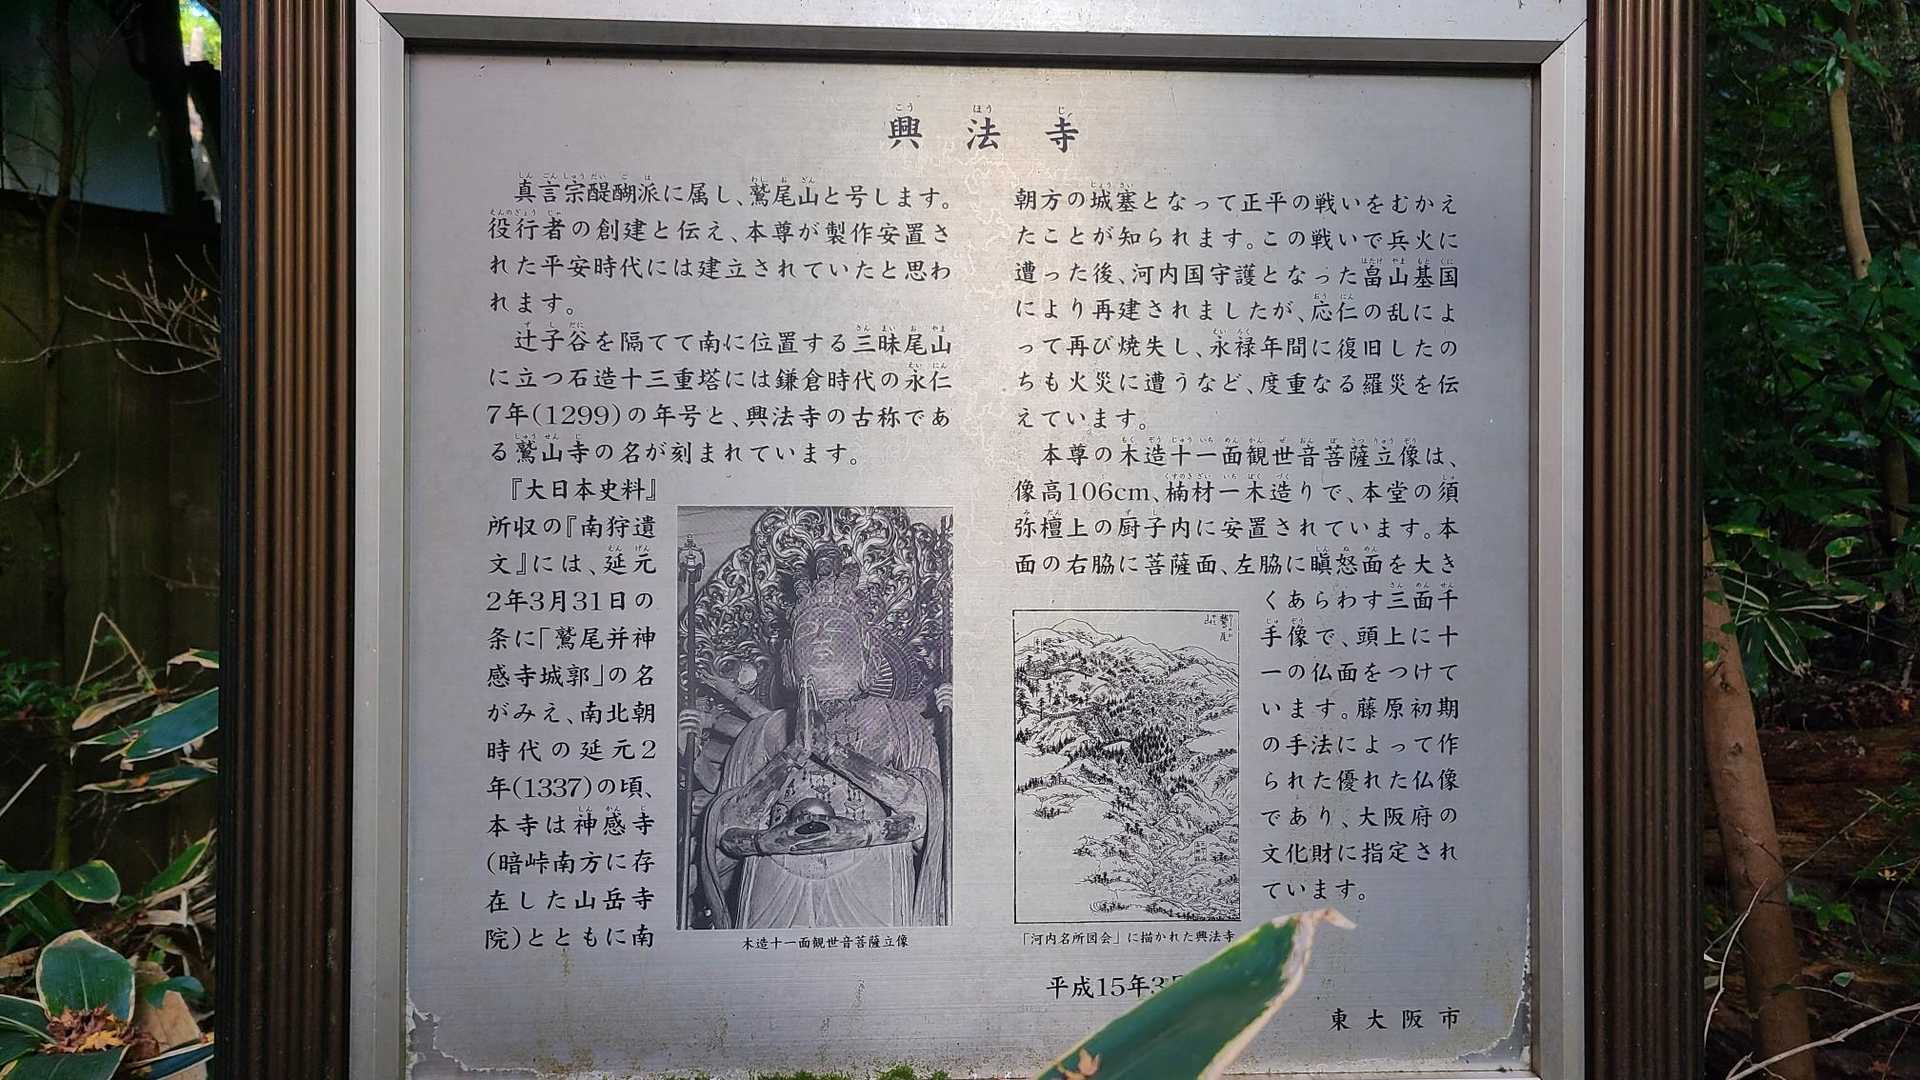 興法寺
真言宗醍醐派に属し、鷲尾山と号します。
役行者の創建と伝え、本尊が製作安置さ
れた平安時代には建立されていたと思わ
れます。
辻子谷を隔てて南に位置する三昧尾山
に立つ石造十三重塔には鎌倉時代の永仁
7年(1299)の年号と、興法寺の古称であ
る鷲山寺の名が刻まれています。
『大日本史料』
所収の『南狩遺
文』には、延元
2年3月31日の
条に「鷲尾并神
感寺城郭」の名
がみえ、南北朝
時代の延元2
年(1337)の頃、
本寺は神感寺
(暗峠南方に存
在した山岳寺
院)とともに南
木造十一面観世音菩薩立像
朝方の城塞となって正平の戦いをむかえ
たことが知られます。この戦いで兵火に
遭った後、河内国守護となった畠山基国
により再建されましたが、応仁の乱によ
って再び焼失し、永禄年間に復旧したの
ちも火災に遭うなど、度重なる羅災を伝
えています。
本尊の木造十一面観世音菩薩立像は、
像高106cm、楠材一木造りで、本堂の須
弥檀上の厨子内に安置されています。本
面の右脇に菩薩面、左脇に瞋怒面を大き
くあらわす三面千
手像で、頭上に十
一の仏面をつけて
います。藤原初期
の手法によって作
られた優れた仏像
であり、大阪府の
文化財に指定され
ています。
鷲尾山
「河内名所図会」に描かれた興法寺
平成15年3
東大阪市